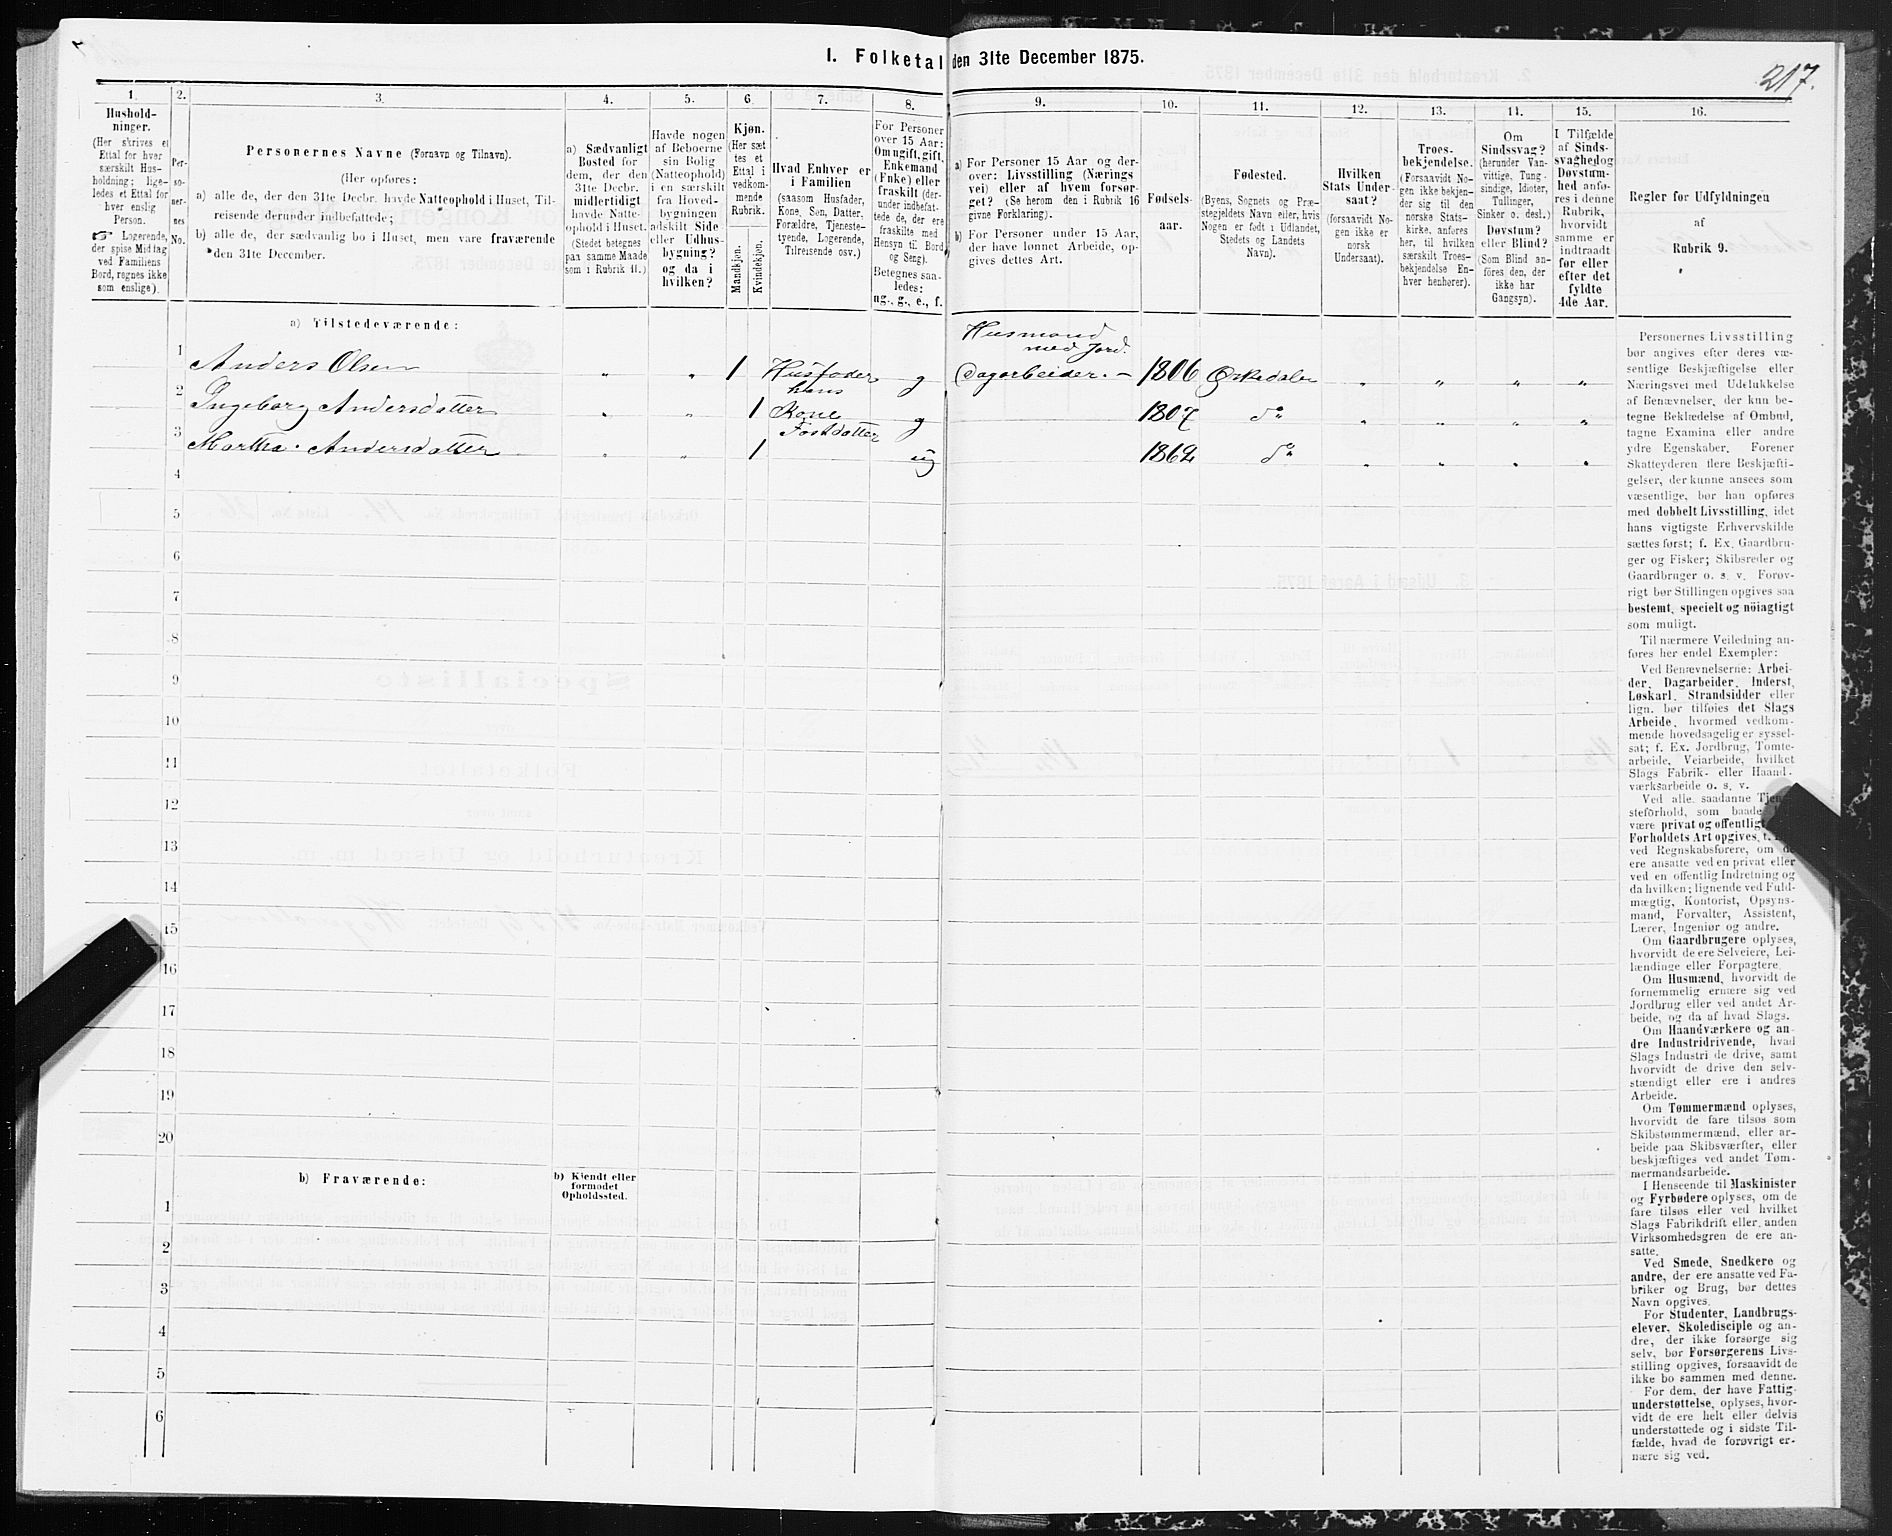 I. Folketal den 31te December 1875.
217.
1.
2.
3.
4.
5.
6.
7.
8.
9.
10.
11.
12.
13.
14.
15.
16.
Hushold-
ninger.
(Her skrives et
Ettal for hver
særskilt Hus-
holdning; lige-
ledes et Ettal for
hver enslig
Person.
☞ Logerende,
der spise Middag
ved Familiens
Bord, regnes ikke
som enslige).
Per-
so-
ner-
nes
No.
Personernes Navne (Fornavn og Tilnavn).
(Her opføres:
a) alle de, der den 31te Decbr. havde Natteophold i Huset, Til-
reisende derunder indbefattede;
b) alle de, der sædvanlig bo i Huset, men vare fraværende
den 31te December.
a) Sædvanligt
Bosted for
dem, der den
31te Decbr.
midlertidigt
havde Natte-
ophold i Huset.
(Stedet betegnes
paa samme Maade
som i Rubrik 11.)
Havde nogen
af Beboerne
sin Bolig
(Natteophold)
i en særskilt
fra Hoved-
bygningen
adskilt Side-
eller Udhus-
bygning?
og da i
hvilken?
Kjøn.
(Her sæt-
tes et
Ettal i
vedkom-
mende
Rubrik.
Mandkjøn.
Kvindekjøn.
Hvad Enhver er
i Familien
(saasom Husfader,
Kone, Søn, Datter,
Forældre, Tjeneste-
tyende, Logerende,
Tilreisende osv.)
For Personer
over 15 Aar:
Om ugift, gift,
Enkemand
(Enke) eller
fraskilt (der-
under indbefat-
tede de, der ere
fraskilte med
Hensyn til Bord
og Seng).
Betegnes saa-
ledes:
ug., g., e., f.
a) For Personer 15 Aar og der-
over: Livsstilling (Nærings
vei) eller af hvem forsør-
get? (Se herom den i Rubrik 16
givne Forklaring).
b) For Personer under 15 Aar,
der have lønnet Arbeide, op-
gives dettes Art.
Fødsels-
aar.
Fødested.
(Byens, Sognets og Præ-
stegjeldets Navn eller, hvis
Nogen er født i Udlandet,
Stedets og Landets
Navn).
Hvilken
Stats Under-
saat?
(forsaavidt No-
gen ikke er
norsk
Undersaat).
Troes-
bekjendelse.
(Forsaavidt No-
gen ikke bekjen-
der sig til den
norske Stats-
kirke, anføres
her, til hvilken
særskilt Troes-
bekjendelse En-
hver henhører).
Om
Sindssvag?
(herunder Van-
vittige, Tung-
sindige, Idioter,
Sinker o. desl.)
Døvstum?
eller Blind?
(Som Blind an-
føres den, der
ikke har
Gangsyn).
I Tilfælde
af Sinds-
svaghed og
Døvstum-
hed anfø-
res i denne
Rubrik,
hvorvidt
samme er
indtraadt
før eller
efter det
fyldte
4de Aar.
Regler for Udfyldningen
af
Rubrik 9.
a) Tilstedeværende:
Husmand
med Jord.
1 Anders Olsen " " 1 Husfader g Dagarbeider. – 1806 Orkedalen " " " "
hans
2 Ingeborg Andersdatter " " 1 Kone g 1807 do " " " "
Fostdatter
3 Martha Andersdatter " " 1 ug 1862 do " " " "
4
5
6
7
8
9
10
11
12
13
14
15
16
17
18
19
20
b) Fraværende:
b) Kjendt eller
formodet
Opholdssted.
1
2
3
4
5
6
Personernes Livsstilling
bør angives efter deres væ-
sentlige Beskjæftigelse eller
Næringsvei med Udelukkelse
af Benævnelser, der kun be-
tegne Beklædelse af Ombud,
tagne Examina eller andre
ydre Egenskaber. Forener
Skatteyderen flere Beskjæfti-
gelser, der kunne ansees som
væsentlige, bør han opføres
med dobbelt Livsstilling, idet
hans vigtigste Erhvervskilde
sættes først; f. Ex. Gaardbru-
ger og Fisker; Skibsreder og
Gaardbruger o. s. v. Forøv-
rigt bør Stillingen opgives saa
bestemt, specielt og nöiagtigt
som muligt.
Til nærmere Veiledning an-
føres her endel Exempler:
Ved Benævnelserne: Arbei-
der, Dagarbeider, Inderst,
Løskarl, Strandsidder eller
lign. bør tilføies det Slags
Arbeide, hvormed vedkom-
mende hovedsagelig er syssel-
sat; f. Ex. Jordbrug, Tomte-
arbeide, Veiarbeide, hvilket
Slags Fabrik- eller Haand-
værksarbeide o. s. v.
Ved alle saadanne
steforhold, som baade
være privat og offentlig
Forholdets Art opgives,
ved Regnskabsførere, om de
ere ansatte ved en privat eller
ved en offentlig Indretning og
da hvilken; lignende ved Fuld-
mægtig, Kontorist, Opsyns-
mand, Forvalter, Assistent,
Lærer, Ingeniør og andre.
Om Gaardbrugere oplyses,
hvorvidt de ere Selveiere, Lei-
lændinge eller Forpagtere.
Om Husmænd, hvorvidt de
fornemmelig ernære sig ved
Jordbrug eller ved andet Ar-
beide, og da af hvad Slags.
Om Haandværkere og an-
dre Industridrivende, hvad
Slags Industri de drive, samt
hvorvidt de drive den selv-
stændigt eller ere i andres
Arbeide.
Om Tømmermænd oplyses,
hvorvidt de fare tilsøs som
Skibstømmermænd, eller ar-
beide paa Skibsværfter, eller
beskjæftiges ved andet Tøm-
mermandsarbeide.
I Henseende til Maskinister
og Fyrbødere oplyses, om de
fare tilsøs eller ved hvilket
Slags Fabrikdrift eller anden
Virksomhedsgren de ere an-
satte.
Ved Smede, Snedkere og
andre, der ere ansatte ved Fa-
briker og Brug, bør dettes
Navn opgives.
For Studenter, Landbrugs-
elever, Skoledisciple og an-
dre, der ikke forsørge sig
selv, bør Forsørgerens Livs-
stilling opgives, forsaavidt de
ikke bo sammen med denne.
For dem, der have Fattig-
understøttelse, oplyses, hvor-
vidt de ere helt eller delvis
understøttede og i sidste Til-
fælde, hvad de forøvrigt er-
nære sig ved.